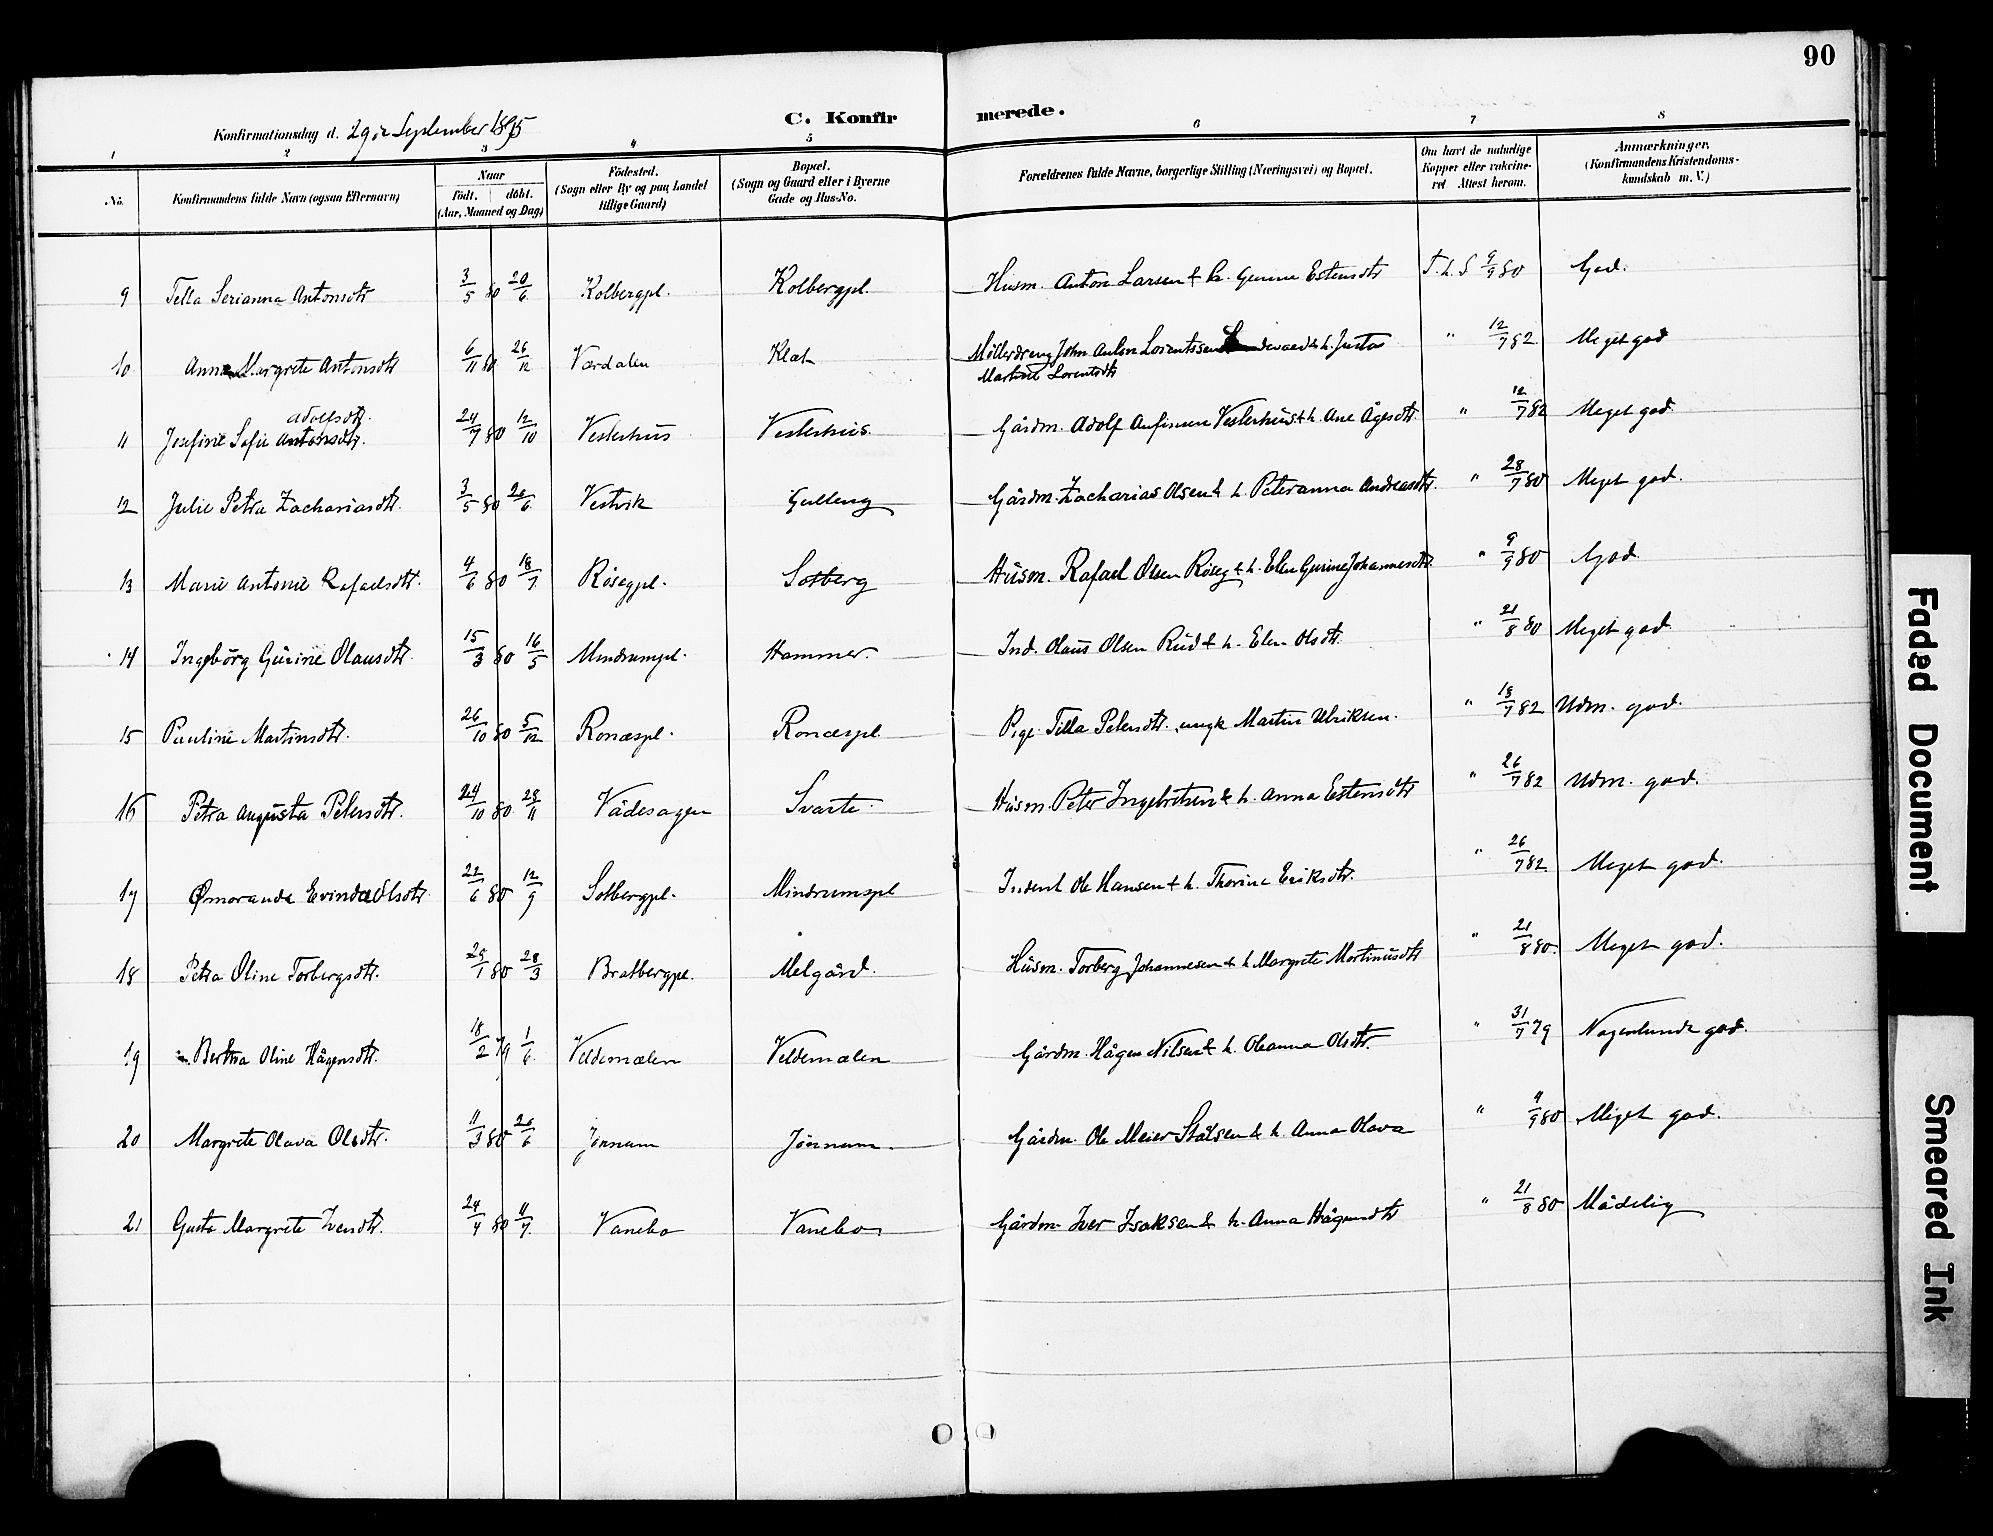 90
Konfirmationsdag d. 29de September 1895
C. Konfirmerede.
1 2 3 4 5 6 7 8
No. Konfirmandens fulde Navn (ogsaa Efternavn) Naar födt. döbt. (Aar, Maaned og Dag) Födested. (Sogn eller By og paa Landet tillige Gaard) Bopæl. (Sogn og Gaard eller i Byerne Gade og Hus-No. Forældrenes fulde Navne, borgerlige Stilling (Næringsvei) og Bopæl. Om havt de naturlige Kopper eller vakcineret Attest herom. Anmærkninger. (Konfirmandens Kristendomskundskab m. V.)
9 Tella Serianna Antonsdtr 3/5 80 20/6 Kolbergpl. Kolbergpl. Husm. Anton Larsen & h. Gunne Estensdtr T. L. S 9/9 80 God.
10 Anna Margrete Antonsdtr 6/11 80 26/12 Værdalen Klat Møllerdreng John Anton Lorentssen & h. Justa Martine Lorentsdtr " 12/7 82 Meget god
11 Josefine Sofie Antonsdtr. Adolfsdtr. 24/7 80 12/10 Vesterhus Vesterhus. Gårdm. Adolf Anfinsen Vesterhus & h. Ane Ågesdtr. " 12/7 82 Meget god
12 Julie Petra Zachariasdtr. 3/5 80 20/6 Vestvik Gulleng Gårdm. Zacharias Olsen & h. Peteranna Andreasdtr. " 28/7 80 Meget god.
13 Marie Antonie Rafaelsdtr. 4/6 80 18/7 Røsegpl. Solberg Husm. Rafael Olsen Røseg & h. Elen Gurine Johannesdtr. " 9/9 80 God
14 Ingeborg Gurine Olausdtr. 15/3 80 16/5 Mindrumpl. Hammer. Ind. Olaus Olsen Rud & h. Elen Olsdtr. " 21/8 80 Meget god.
15 Pauline Martinsdtr. 26/10 80 5/12 Ronæspl. Ronæspl Pige Tilla Petersdtr. ungk Martin Ulriksen. " 18/7 82 Udm. god.
16 Petra Augusta Petersdtr. 24/10 80 28/11 Vådesagen Svarte. Husm. Peter Ingebritsen & h. Anna Estensdtr " 26/7 82 Udm. god.
17 Ømoranda Evinda Olsdtr 22/6 80 12/9 Solbergpl. Mindrumspl Inderst Ole Hansen & h. Thorine Eriksdtr. " 26/7 82 Meget god.
18 Petra Oline Torbergsdtr. 25/1 80 28/3 Bratbergpl. Melgård. Husm. Torberg Johannesen & h Margrete Martinusdtr " 21/8 80 Meget god.
19 Bertha Oline Hågensdtr. 18/2 79 1/6 Veldemælen Veldemælen Gårdm. Hågen Nilsen & h. Oleanna Olsdtr. " 31/7 79 Nogenlunde god.
20 Margrete Olava Olsdtr. 11/3 80 20/6 Jønnum Jønnum. Gårdm. Ole Meier Stålsen & h. Anna Olava " 9/9 80 Meget god.
21 Gusta Margrete Iversdtr. 24/4 80 4/7 Vanebo Vanebo Gårdm. Iver Isaksen & h. Anna Hågensdtr " 21/8 80 Mådelig
Faded Document
Smeared Ink